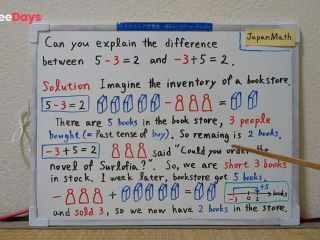 eeDays
JapanMath
Can you explain the difference
between 5-3=2 and -3+5=2.
Solution Imagine the inventory of a bookstore.
5-3=2 - =
There are 5 books in the book store, 3 people
bought (= Past tense of buy). So remaing is 2 books.
-3+5=2 said "Could you order the
novel of Surlofia?" So, we are short 3 books
in stock. 1 week later, bookstore got 5 books.
- + = +5
-3 0 2 books
and sold 3, so we now have 2 books in the store.